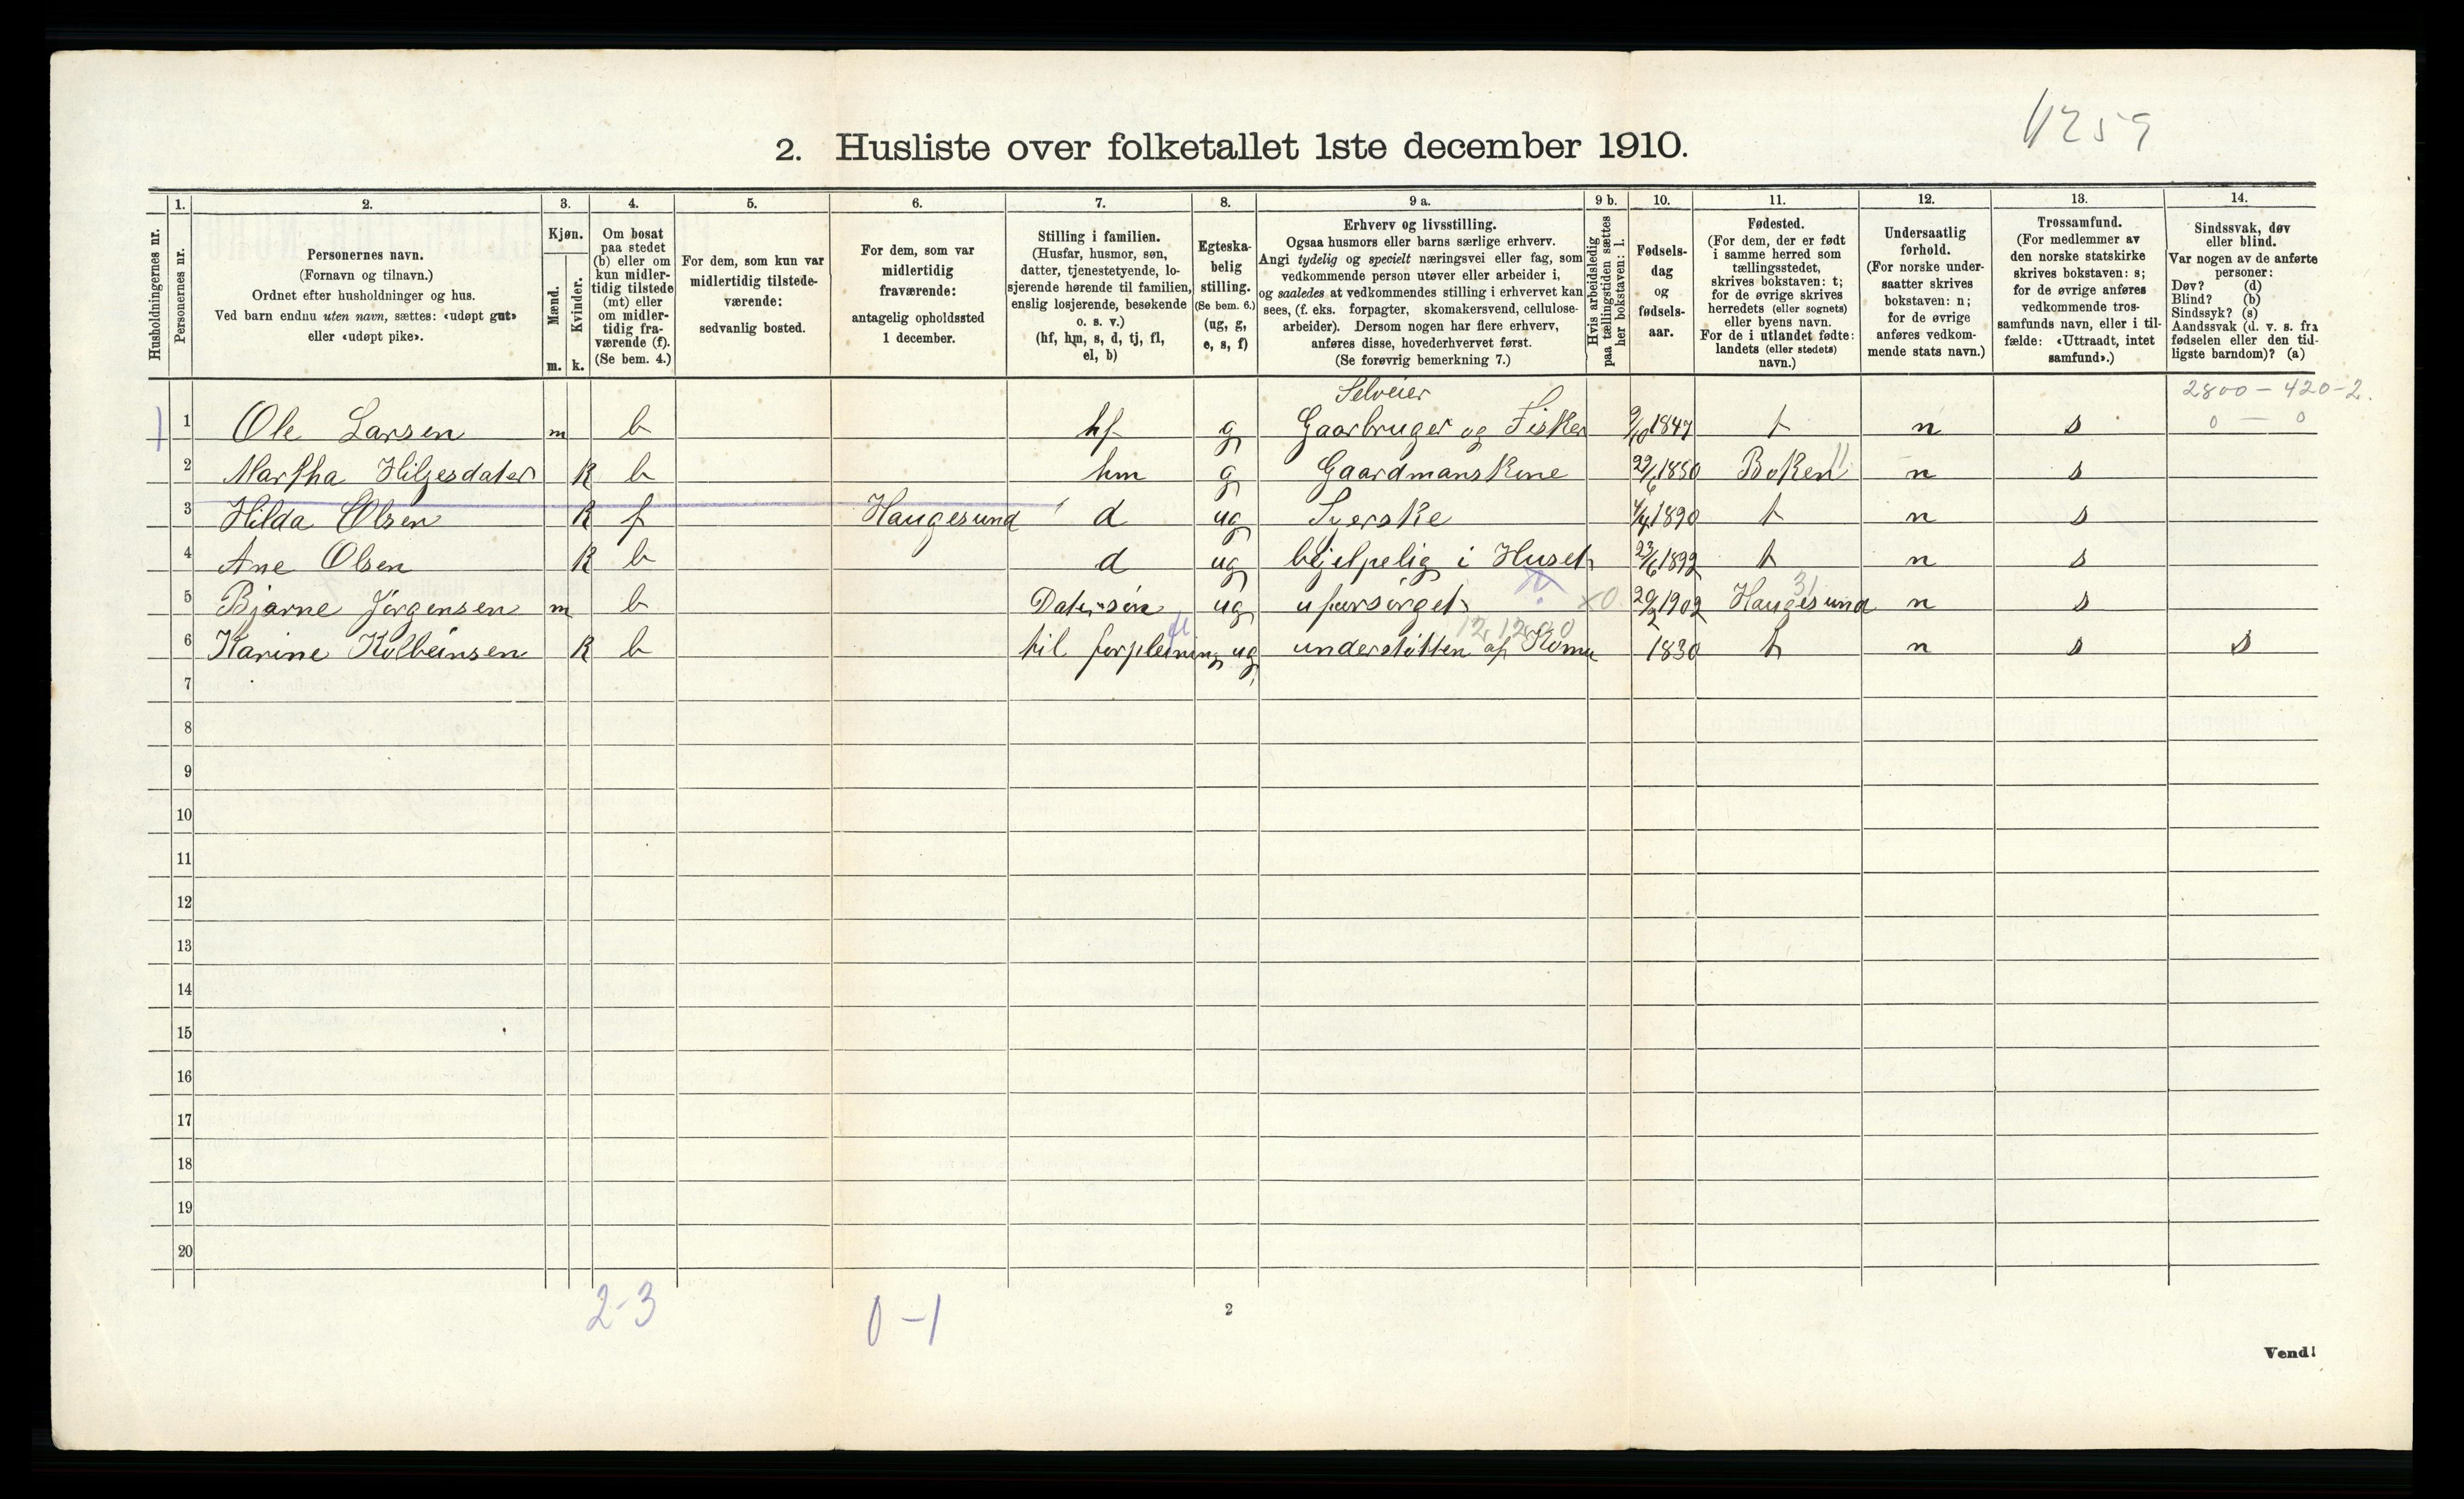 1259
2. Husliste over folketallet 1ste december 1910.
Husholdningernes nr.
1. Personernes nr.
2. Personernes navn.
(Fornavn og tilnavn.)
Ordnet efter husholdninger og hus.
Ved barn endnu uten navn, sættes: «udøpt gut»
eller «udøpt pike».
3. Kjøn.
Mænd. m.
Kvinder. k.
4. Om bosat
paa stedet
(b) eller om
kun midler-
tidig tilstede
(mt) eller
om midler-
tidig fra-
værende (f).
(Se bem. 4.)
5. For dem, som kun var
midlertidig tilstede-
værende:
sedvanlig bosted.
6. For dem, som var
midlertidig
fraværende:
antagelig opholdssted
1 december.
7. Stilling i familien.
(Husfar, husmor, søn,
datter, tjenestetyende, lo-
sjerende hørende til familien,
enslig losjerende, besøkende
o. s. v.)
(hf, hm, s, d, tj, fl,
el, b)
8. Egteska-
belig
stilling.
(Se bem. 6.)
(ug, g,
e, s, f)
9 a. Erhverv og livsstilling.
Ogsaa husmors eller barns særlige erhverv.
Angi tydelig og specielt næringsvei eller fag, som
vedkommende person utøver eller arbeider i,
og saaledes at vedkommendes stilling i erhvervet kan
sees, (f. eks. forpagter, skomakersvend, cellulose-
arbeider). Dersom nogen har flere erhverv,
anføres disse, hovederhvervet først.
(Se forøvrig bemerkning 7.)
9 b. Hvis arbeidsledig
paa tællingstiden sættes
her bokstaven: l.
10. Fødsels-
dag
og
fødsels-
aar.
11. Fødested.
(For dem, der er født
i samme herred som
tællingsstedet,
skrives bokstaven: t;
for de øvrige skrives
herredets (eller sognets)
eller byens navn.
For de i utlandet fødte:
landets (eller stedets)
navn.)
12. Undersaatlig
forhold.
(For norske under-
saatter skrives
bokstaven: n;
for de øvrige
anføres vedkom-
mende stats navn.)
13. Trossamfund.
(For medlemmer av
den norske statskirke
skrives bokstaven: s;
for de øvrige anføres
vedkommende tros-
samfunds navn, eller i til-
fælde: «Uttraadt, intet
samfund».)
14. Sindssvak, døv
eller blind.
Var nogen av de anførte
personer:
Døv? (d)
Blind? (b)
Sindssyk? (s)
Aandssvak (d. v. s. fra
fødselen eller den tid-
ligste barndom)? (a)
Selveier 2800 - 420-2.
1 1 Ole Larsen m b hf g Gaarbruger og Fisker 9/10 1847 t n s 0 — 0
2 Martha Hilgesdater K b hm g Gaardmanskone 29/6 1850 Boken 11 n s
3 Hilda Olsen K f Haugesund d ug Syerske 4/4 1890 t n s
4 Ane Olsen K b d ug bhjelpelig i Huset 23/6 1892 t n s
5 Bjarne Jørgensen m b Datersøn ug uforsørget x0 20/2 1902 Haugesund 31 n s
12,12,00
6 Karine Kolbeinsen K b til forpleining fl ug understøtten af Komu 1830 t n s s
7
8
9
10
11
12
13
14
15
16
17
18
19
20
2-3 0-1
2
Vend!